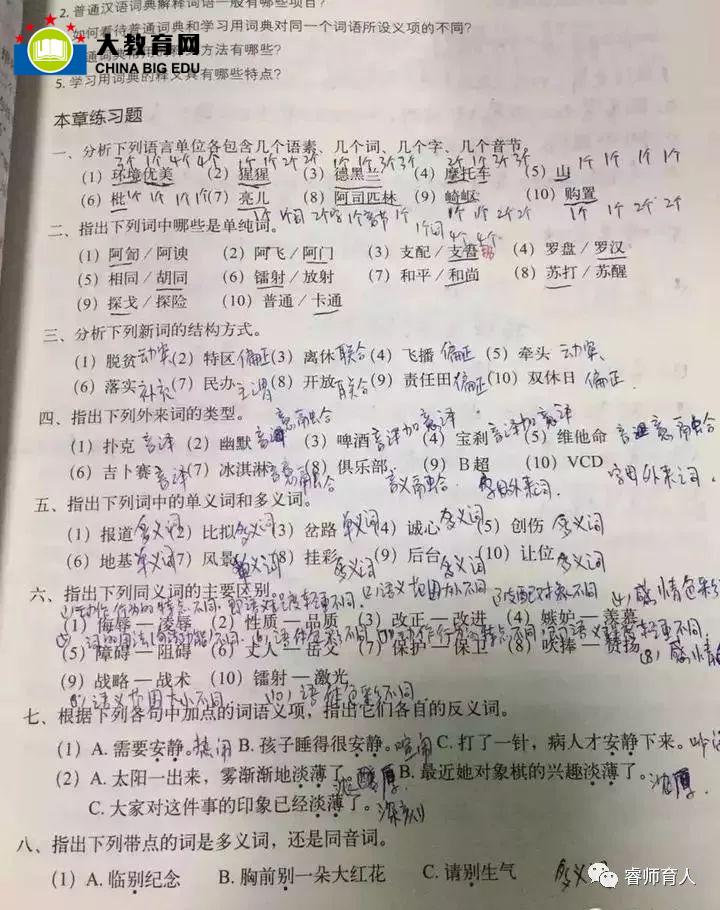 2. 普通汉语词典解释词语一般有哪些项目?
如何看待普通词典和学习用词典对同一个词语所设义项的不同?
大教育网
CHINA BIG EDU
方法有哪些?
5. 学习用词典的释义具有哪些特点?
本章练习题
一、分析下列语言单位各包含几个语素、几个词、几个字、几个音节。
3个 1个 4个 4个 1个 1个 2个 2个 1个 1个 3个 3个 2个 1个 3个 3个 1个 1个 1个 1个
(1) 环境优美 (2) 猩猩 (3) 德黑兰 (4) 摩托车 (5) 山
(6) 枇 1个 1个 1个 (7) 亮儿 (8) 阿司匹林 (9) 崎岖 (10) 购置
二、指出下列词中哪些是单纯词。
(1) 阿訇/阿谀 (2) 阿飞/阿门 (3) 支配/支吾 (4) 罗盘/罗汉
(5) 相同/胡同 (6) 镭射/放射 (7) 和平/和尚 (8) 苏打/苏醒
(9) 探戈/探险 (10) 普通/卡通
三、分析下列新词的结构方式。
(1) 脱贫 动宾 (2) 特区 偏正 (3) 离休 联合 (4) 飞播 偏正 (5) 牵头 动宾
(6) 落实 补充 (7) 民办 主谓 (8) 开放 联合 (9) 责任田 偏正 (10) 双休日 偏正
四、指出下列外来词的类型。
(1) 扑克 音译 (2) 幽默 音译 (3) 啤酒 音译加意译 (4) 宝刹 音译加意译 (5) 维他命 音译意融合
(6) 吉卜赛 音译 (7) 冰淇淋 音意融合 (8) 俱乐部 音义融合 (9) B超 字母外来词 (10) VCD 字母外来词
五、指出下列词中的单义词和多义词。
(1) 报道 多义词 (2) 比拟 多义词 (3) 岔路 单义词 (4) 诚心 多义词 (5) 创伤 多义词
(6) 地基 单义词 (7) 风景 单义词 (8) 挂彩 多义词 (9) 后台 多义词 (10) 让位 多义词
六、指出下列同义词的主要区别。
(1) 侮辱—凌辱 (2) 性质—品质 (3) 改正—改进 (4) 嫉妒—羡慕
(5) 障碍—阻碍 (6) 丈人—岳父 (7) 保护—保卫 (8) 吹捧—赞扬
(9) 战略—战术 (10) 镭射—激光
(9) 语义范围大小不同 (10) 语体色彩不同
七、根据下列各句中加点的词语义项,指出它们各自的反义词。
(1) A. 需要安静。热闹 B. 孩子睡得很安静。喧闹 C. 打了一针,病人才安静下来。
(2) A. 太阳一出来,雾渐渐地淡薄了。浓厚 B. 最近她对象棋的兴趣淡薄了。浓厚
C. 大家对这件事的印象已经淡薄了。深刻
八、指出下列带点的词是多义词,还是同音词。
(1) A. 临别纪念 B. 胸前别一朵大红花 C. 请别生气 多义词
睿师育人